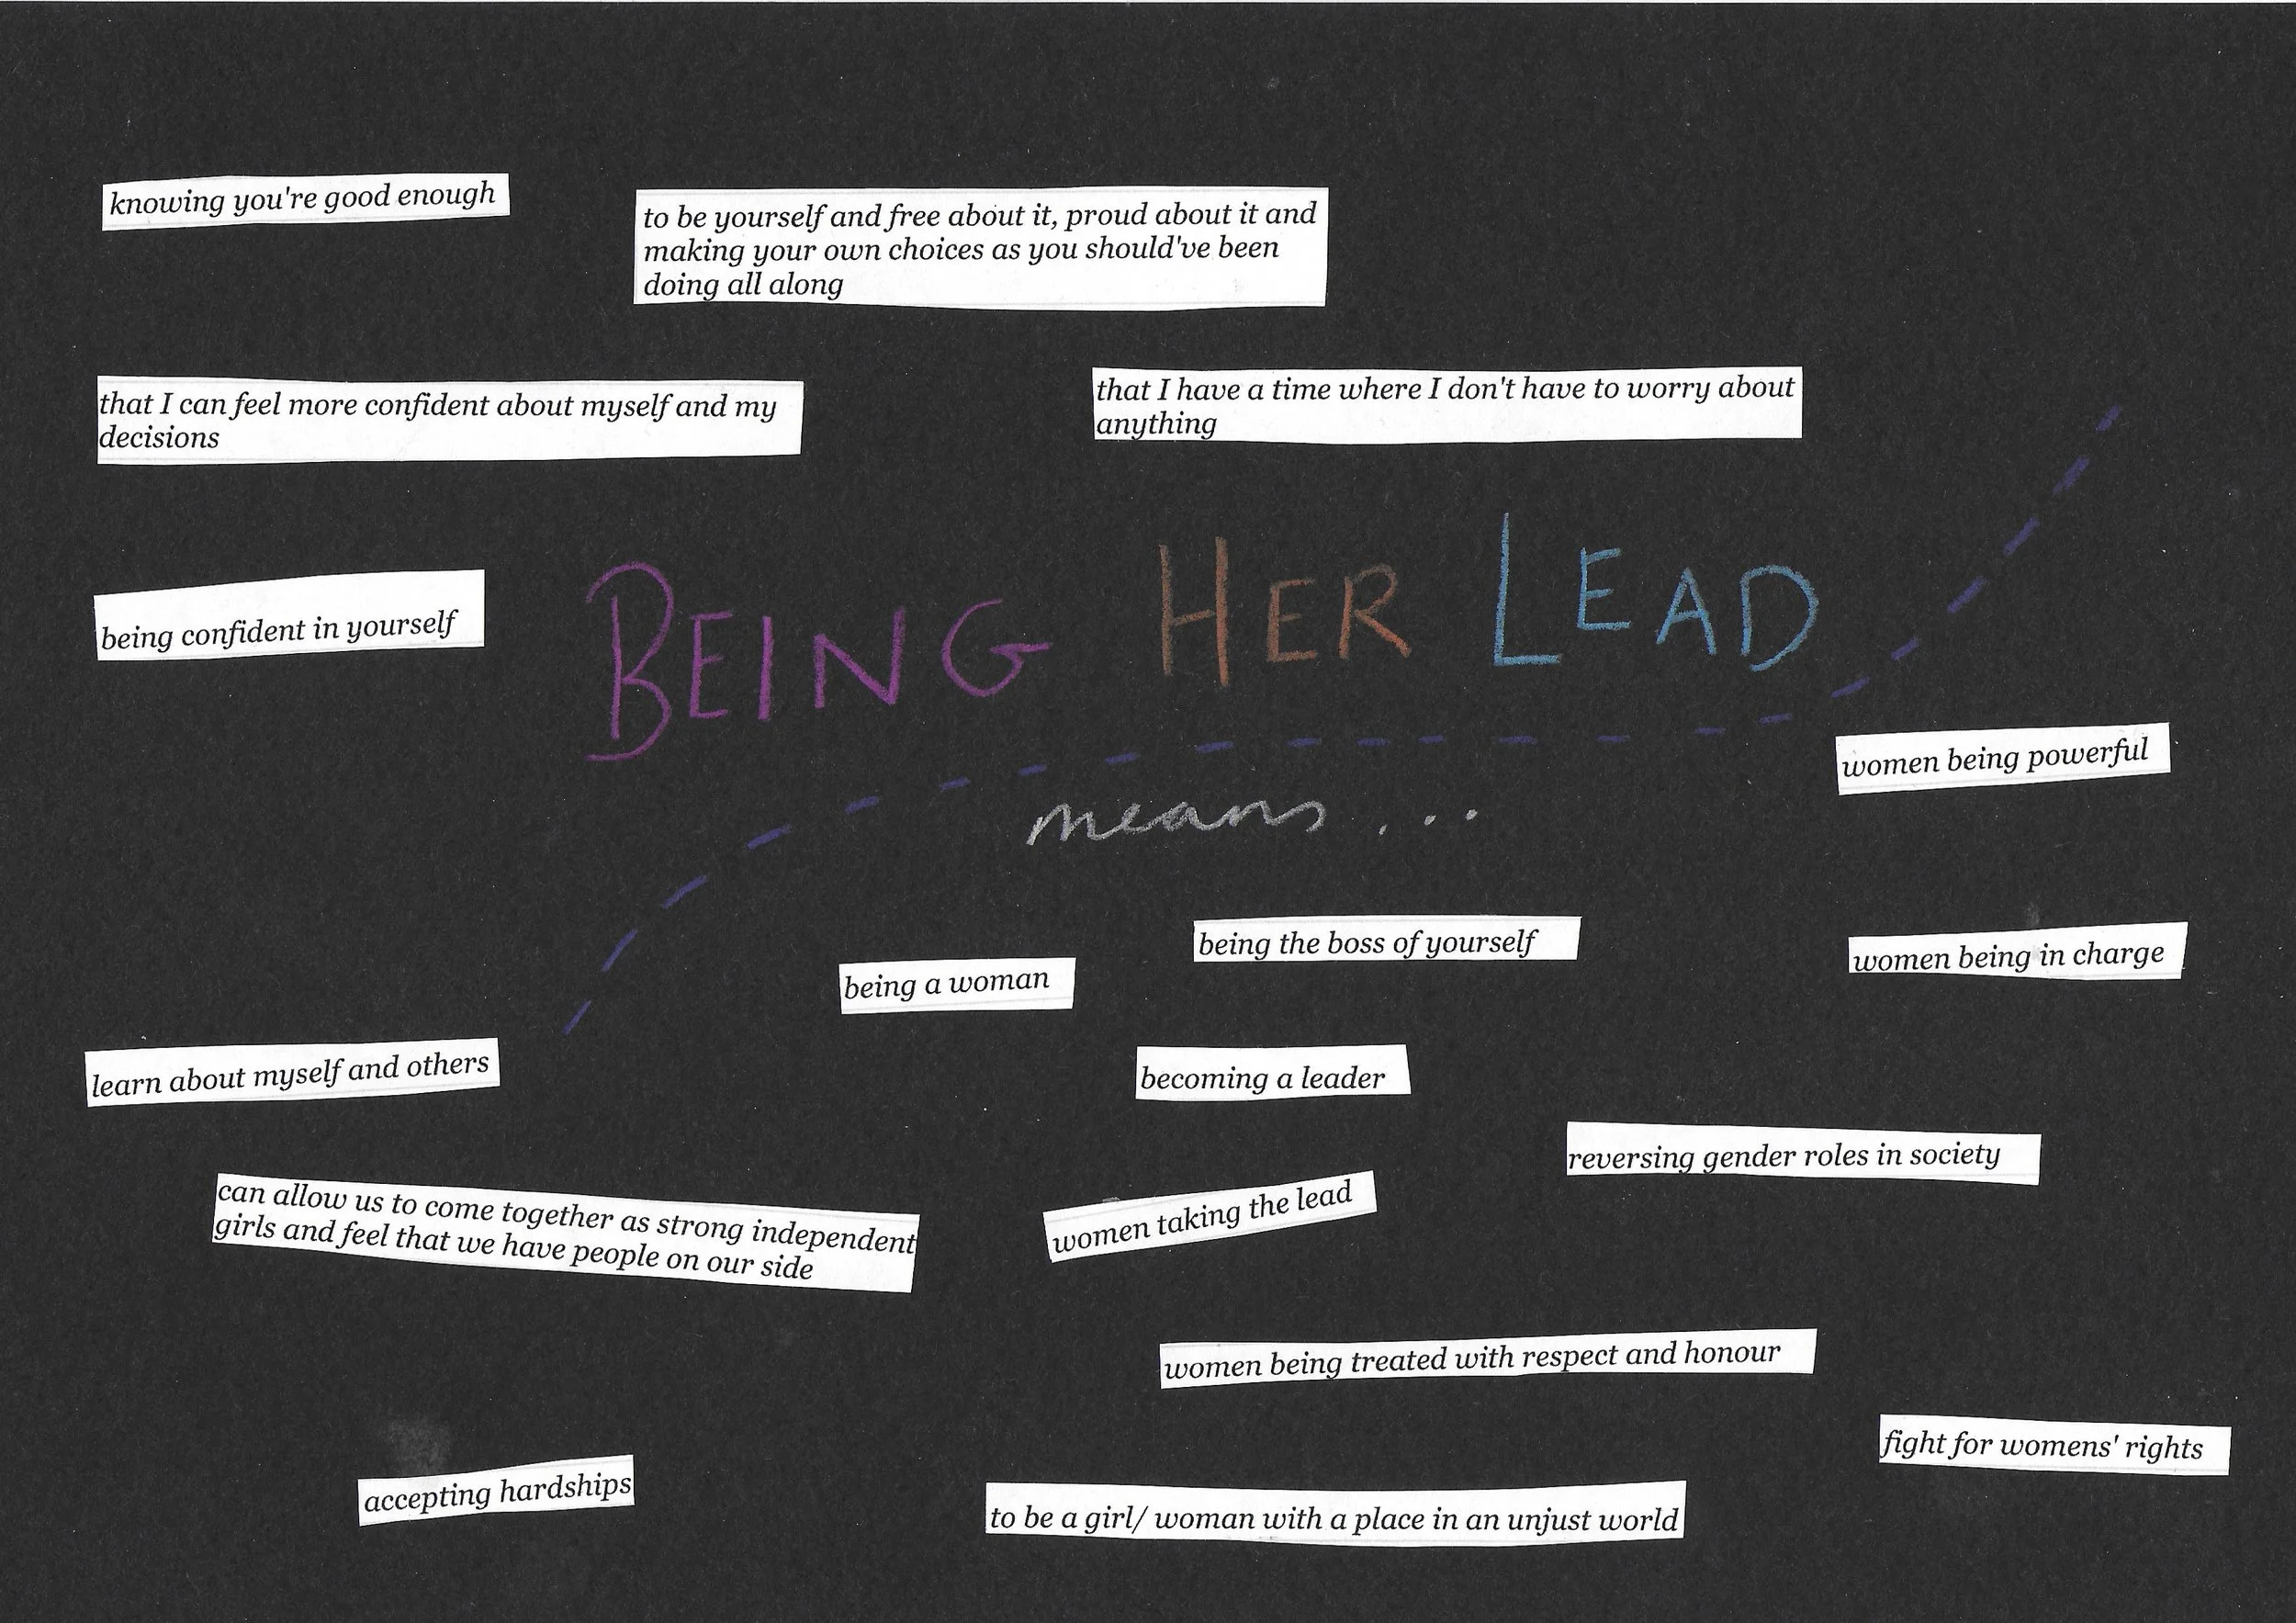 knowing you're good enough
to be yourself and free about it, proud about it and
making your own choices as you should've been
doing all along
that I can feel more confident about myself and my
decisions
that I have a time where I don't have to worry about
anything
being confident in yourself
BEING HER LEAD
means...
women being powerful
being the boss of yourself
women being in charge
being a woman
learn about myself and others
becoming a leader
reversing gender roles in society
can allow us to come together as strong independent
girls and feel that we have people on our side
women taking the lead
women being treated with respect and honour
fight for womens' rights
accepting hardships
to be a girl/ woman with a place in an unjust world